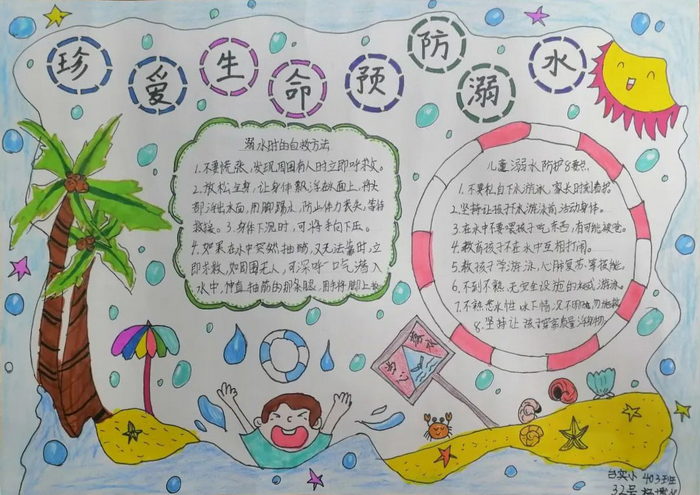 珍爱生命预防溺水
溺水时的自救方法
1.不要慌张,发现周围有人时立即呼救。
2.放松全身,让身体飘浮在水面上,将头
部浮出水面,用脚踢水,防止体力丧失,等待
救援。3.身体下沉时,可将手向下压。
4.如果在水中突然抽筋,又无法靠岸时,立
即求救,如周围无人,可深呼吸潜入
水中,伸直抽筋的那条腿,用手将脚上
儿童溺水防护8要点
1.不要私自下水游泳,家长时刻
2.坚持让孩子下水游泳前活动身体。
3.在水中不要喂孩子吃东西,有可能被呛。
4.教育孩子不在水中互相打闹。
5.教孩子学游泳,心肺复苏等技能。
6.不到不熟,无安全设施的水域游泳。
7.不熟悉水性
8.坚持让孩子穿高质量浮
禁止
台实小 403班
32号